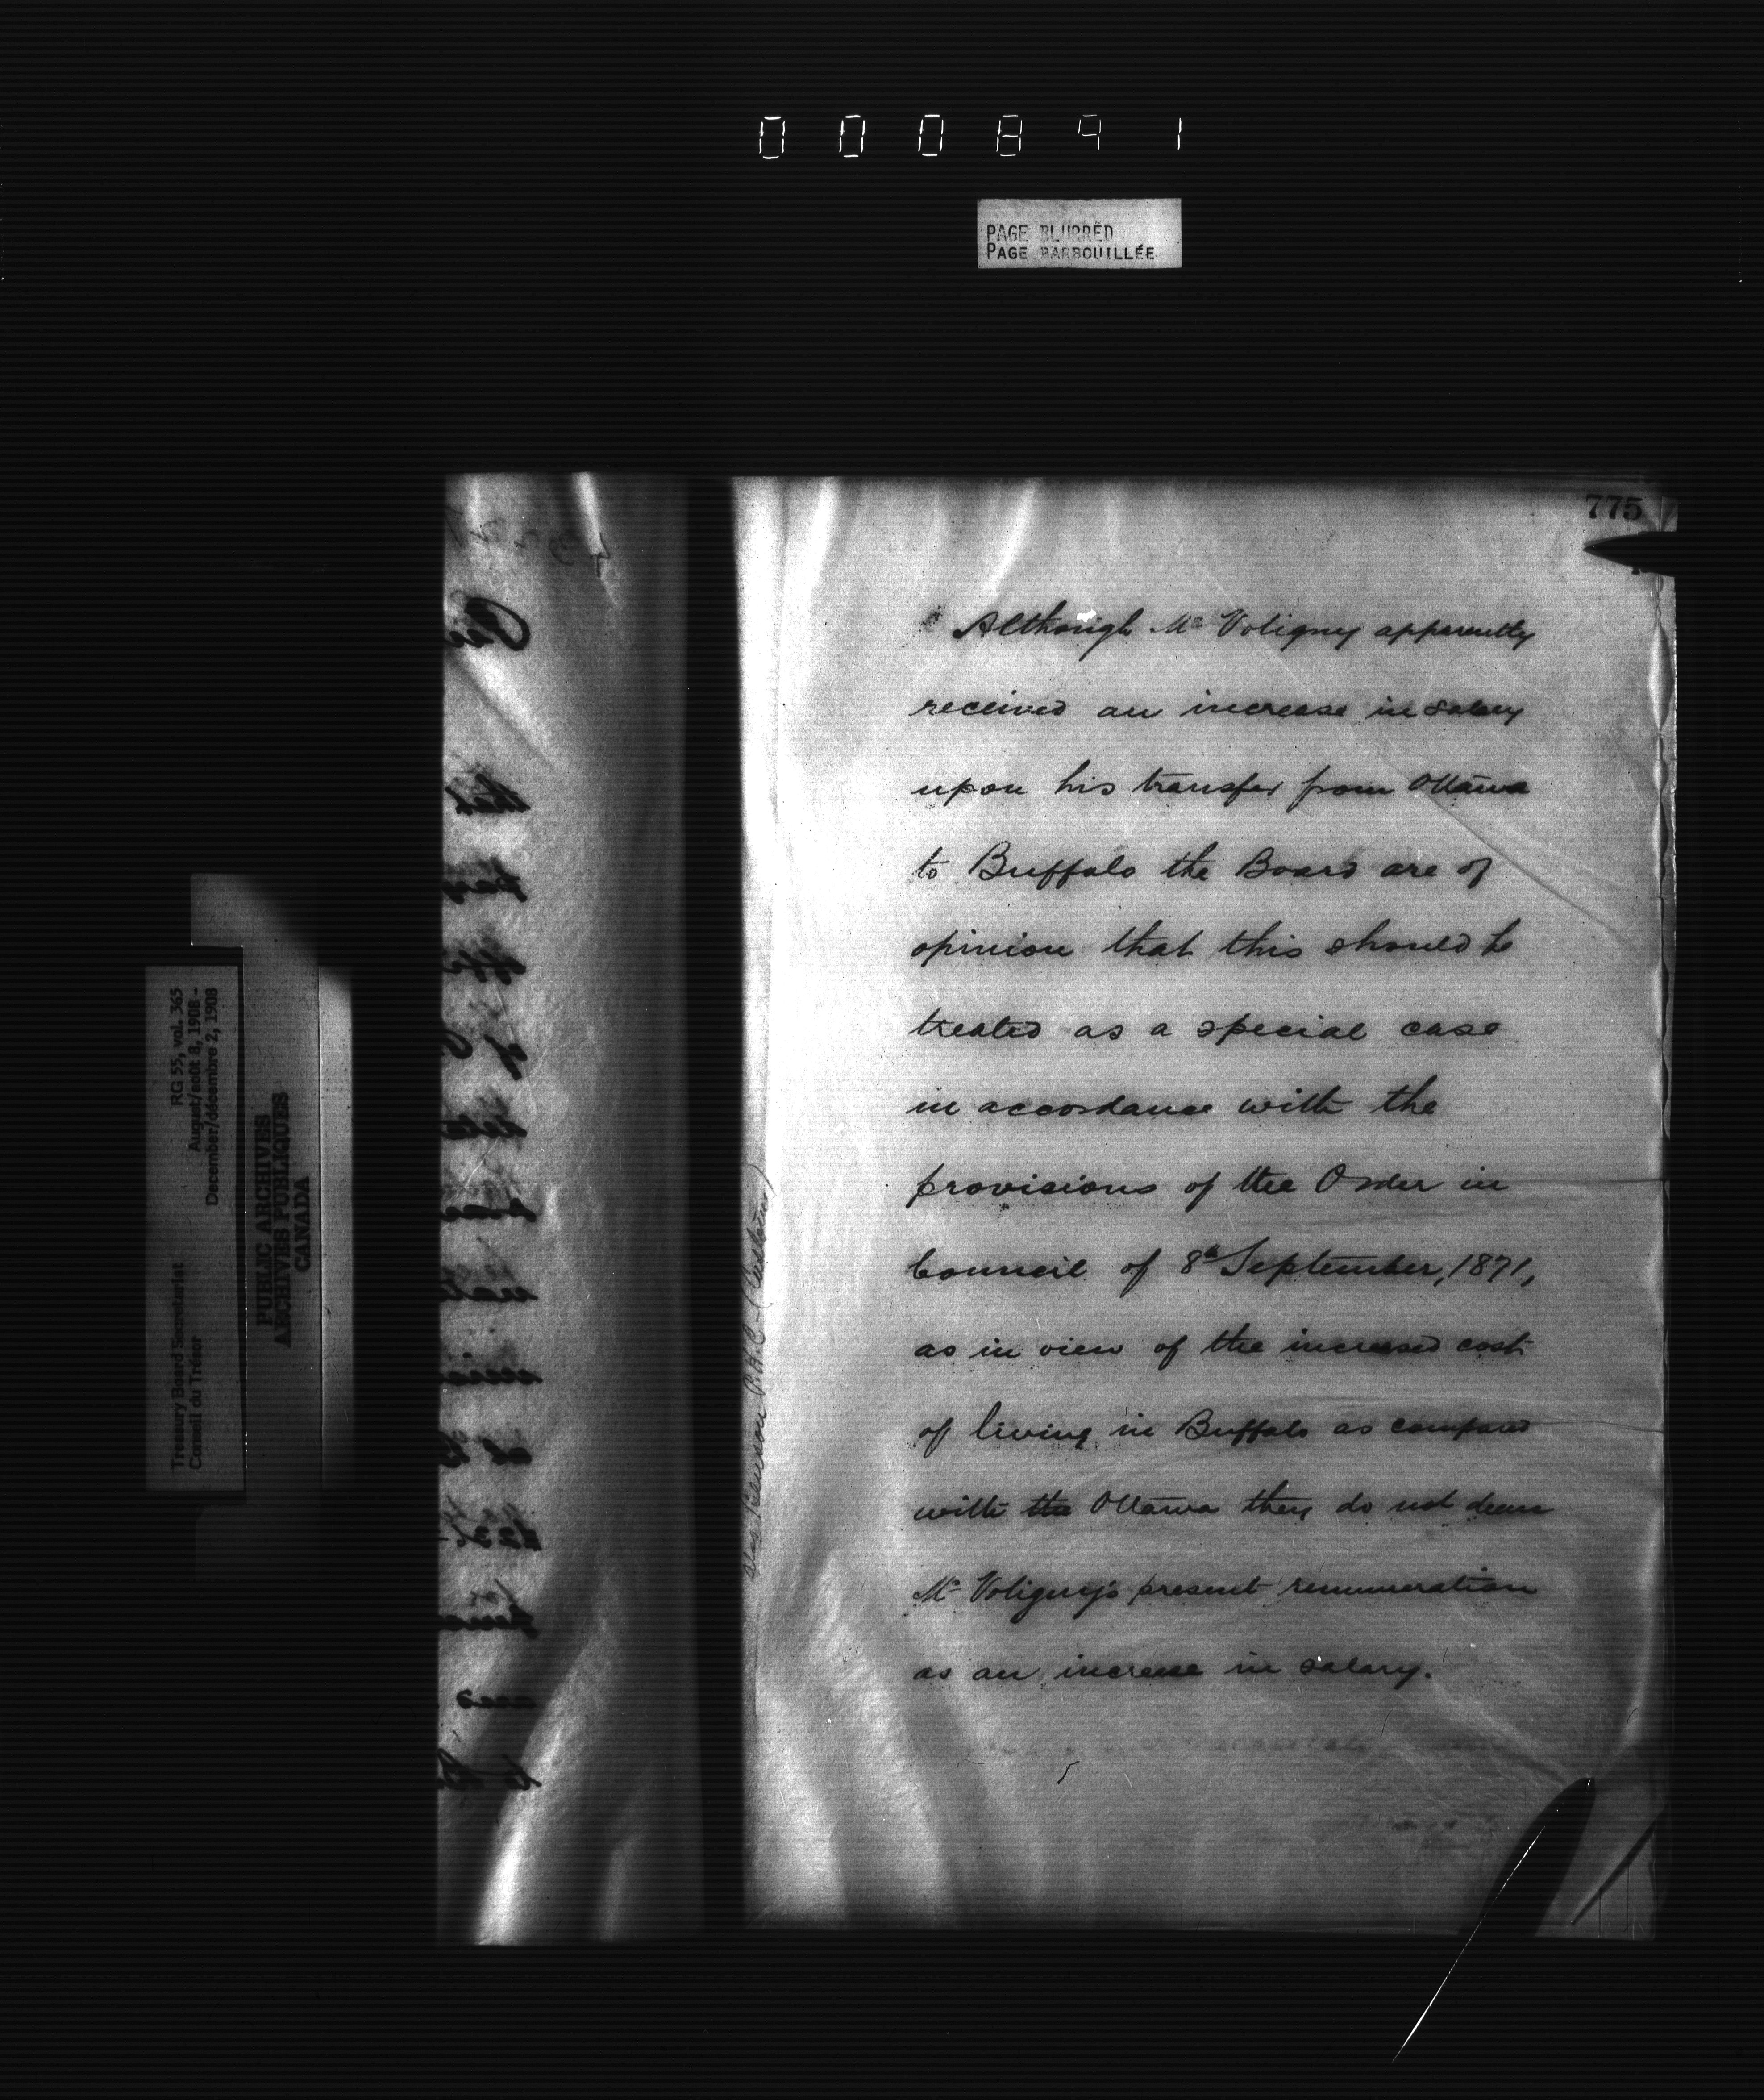 000891
PAGE BLURRED
PAGE BARBOUILLÉE
775
Although Mr Voligny apparently
received an increase in salary
upon his transfer from Ottawa
to Buffalo the Board are of
opinion that this should be
treated as a special case
in accordance with the
provisions of the Order in
Council of 8th September, 1871,
as in view of the increased cost
of living in Buffalo as compared
with the Ottawa they do not deem
Mr Voligny's present remuneration
as an increase in salary.
P.H.C. - (Customs)
Treasury Board Secretariat
Conseil du Trésor
RG 55, vol. 365
August/août 8, 1908 -
December/décembre 2, 1908
PUBLIC ARCHIVES
ARCHIVES PUBLIQUES
CANADA